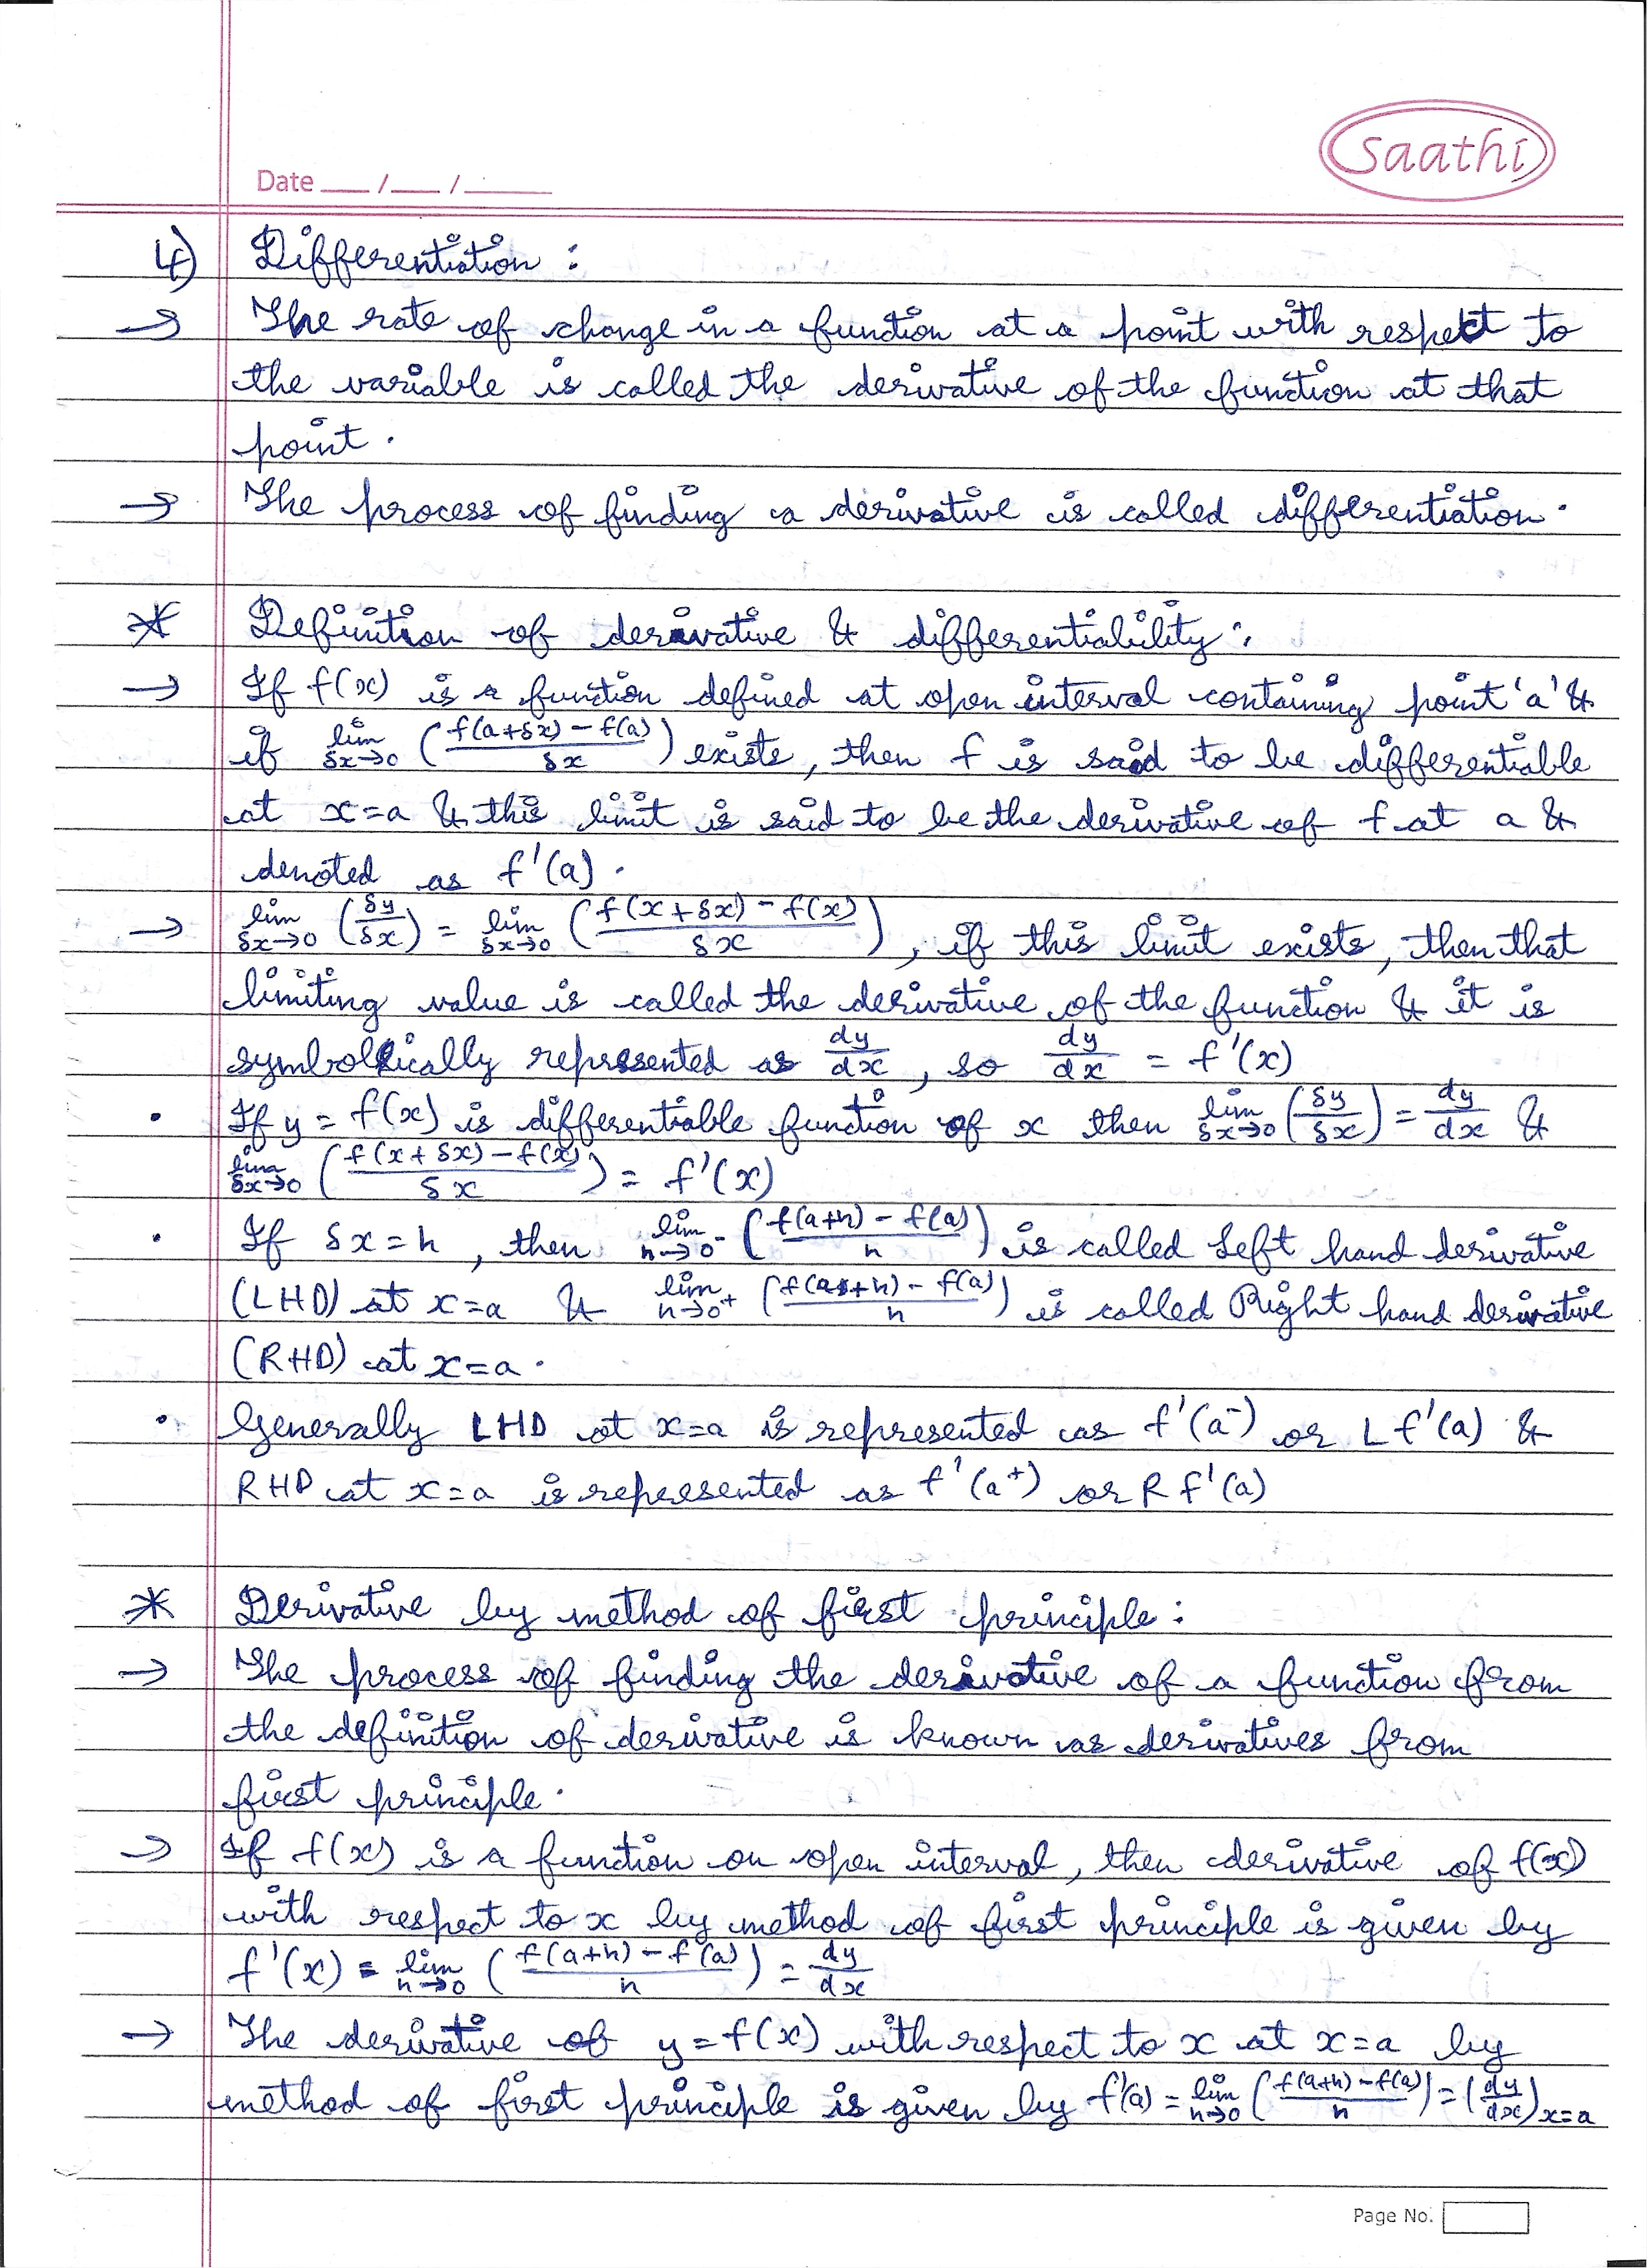 Saathi
Date ___ / ___ / ______
4) Differentiation :
→ The rate of change in a function at a point with respect to
the variable is called the derivative of the function at that
point.
→ The process of finding a derivative is called differentiation.
* Definition of derivative & differentiability :
→ If f(x) is a function defined at open interval containing point 'a' &
if lim δx→0 (f(a+δx) - f(a) / δx) exists, then f is said to be differentiable
at x=a & this limit is said to be the derivative of f at a &
denoted as f'(a).
→ lim δx→0 (δy/δx) = lim δx→0 (f(x+δx) - f(x) / δx), if this limit exists, then that
limiting value is called the derivative of the function & it is
symbolically represented as dy/dx, so dy/dx = f'(x)
• If y = f(x) is differentiable function of x then lim δx→0 (δy/δx) = dy/dx &
lim δx→0 (f(x+δx) - f(x) / δx) = f'(x)
• If δx = h, then lim h→0⁻ (f(a+h) - f(a) / h) is called Left hand derivative
(LHD) at x=a & lim h→0⁺ (f(a+h) - f(a) / h) is called Right hand derivative
(RHD) at x=a.
• Generally LHD at x=a is represented as f'(a⁻) or L f'(a) &
RHD at x=a is represented as f'(a⁺) or R f'(a)
* Derivative by method of first principle :
→ The process of finding the derivative of a function from
the definition of derivative is known as derivatives from
first principle.
→ If f(x) is a function on open interval, then derivative of f(x)
with respect to x by method of first principle is given by
f'(x) = lim h→0 (f(a+h) - f(a) / h) = dy/dx
→ The derivative of y = f(x) with respect to x at x=a by
method of first principle is given by f'(a) = lim h→0 (f(a+h) - f(a) / h) = (dy/dx) x=a
Page No.